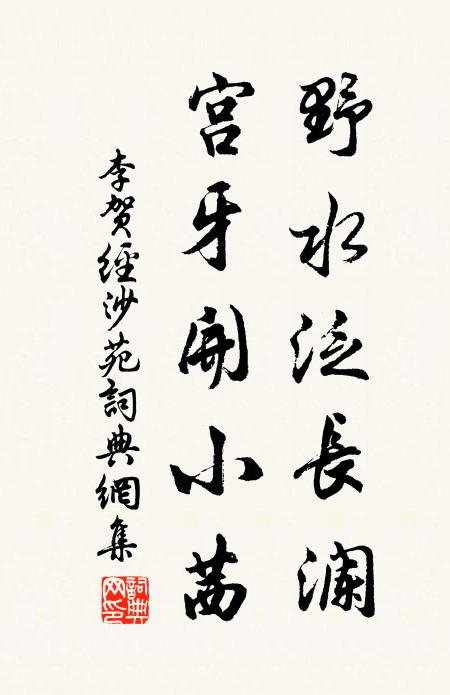 野水泛長瀾
宮牙開小蒨
李賀經沙苑詞典網集
詞典網印